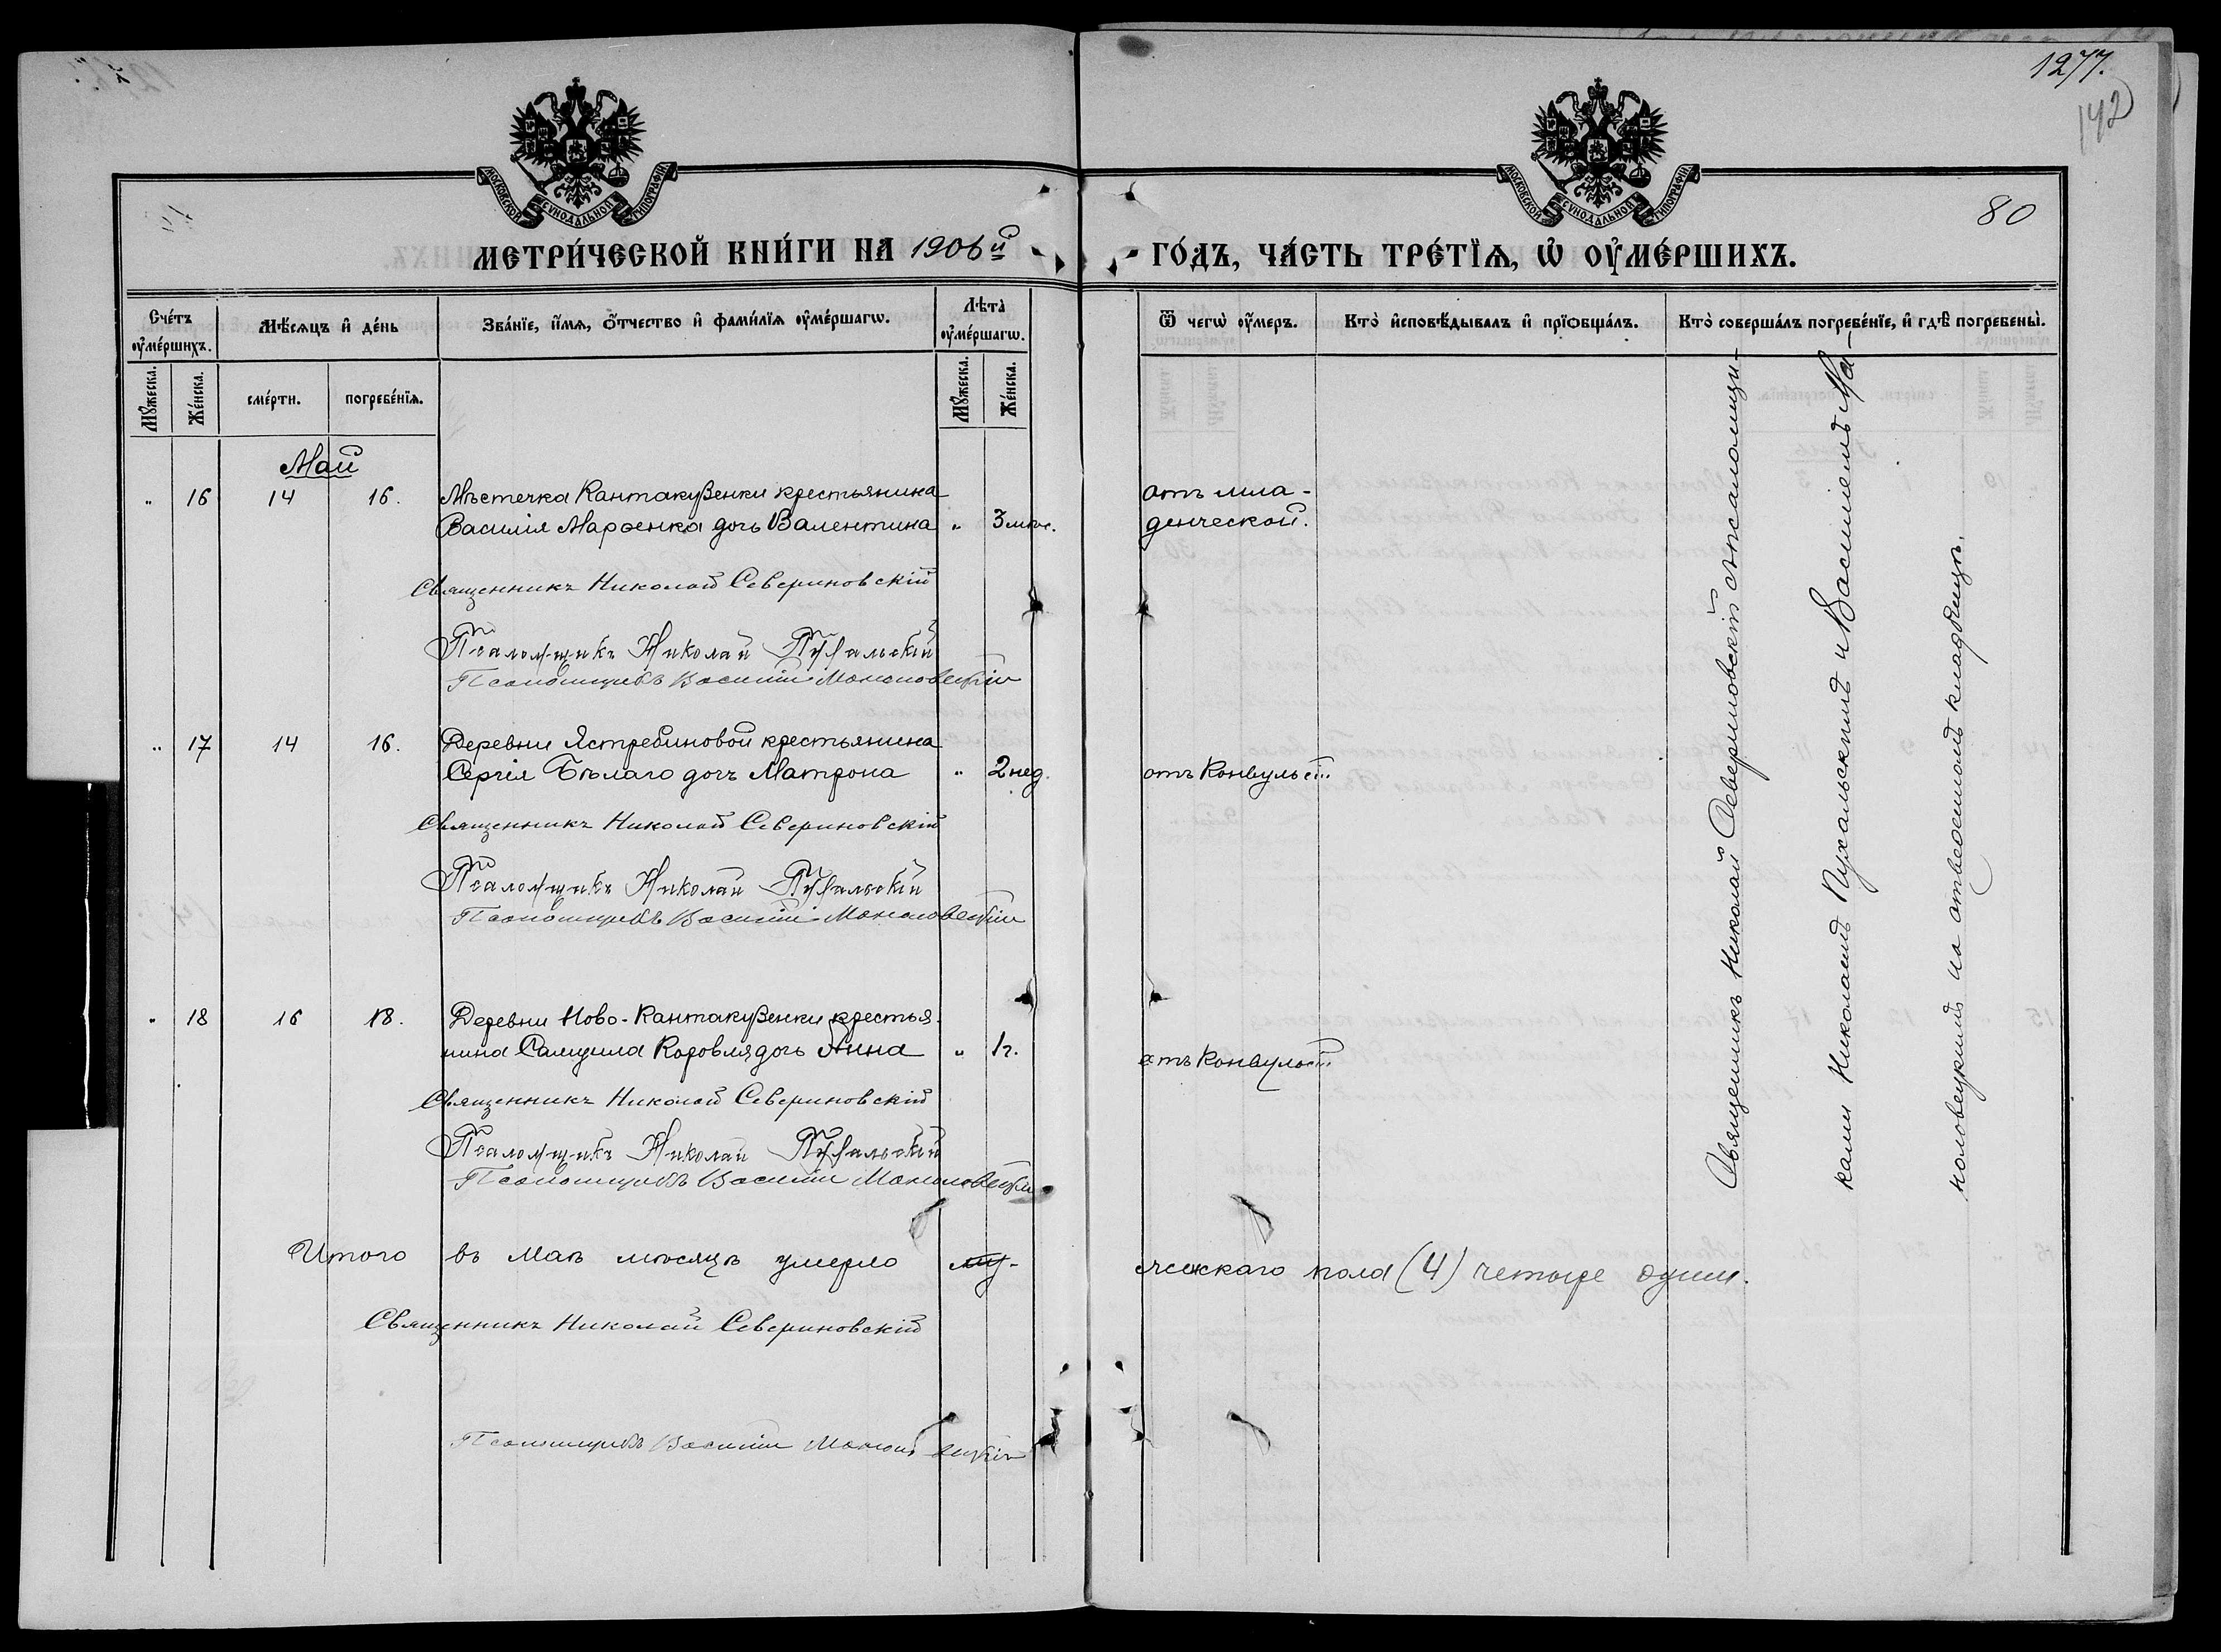 1277.
142
80
МОСКОВСКОЙ СУНОДАЛЬНОЙ ТИПОГРАФІИ
МОСКОВСКОЙ СУНОДАЛЬНОЙ ТИПОГРАФІИ
МЕТРИ́ЧЕСКОЙ КНИ́ГИ НА 1906й ГО́ДЪ, ЧА́СТЬ ТРЕ́ТІѦ, Ѡ҆ ОУ҆МЕ́РШИХЪ.
Сче́тъ оу҆ме́ршихъ.
Мѣ́сѧцъ и҆ де́нь
Зва́нїе, и҆́мѧ, ѻ҆́тчество и҆ фами́лїѧ оу҆ме́ршагѡ.
Лѣта̀ оу҆ме́ршагѡ.
Ѿ чегѡ̀ оу҆́меръ.
Кто̀ и҆сповѣ́дывалъ и҆ прїѡбща́лъ.
Кто̀ соверша́лъ погребе́нїе, и҆ гдѣ̀ погребены̀.
Мꙋ́жеска.
Же́нска.
сме́рти.
погребе́нїѧ.
Мꙋ́жеска.
Же́нска.
Май
„ 16 14 16. Мѣстечка Кантакузенки крестьянина
Василія Марченка дочь Валентина „ 3 мѣс. отъ мла-
денческой.
Священникъ Николай Севериновскій
Псаломщикъ Николай Пухальскій
Псаломщикъ Василій
„ 17 14 16. Деревни Ястребиновой крестьянина
Сергія Бѣлаго дочь Матрона „ 2 нед. отъ конвульсій
Священникъ Николай Севериновскій
Псаломщикъ Николай Пухальскій
Псаломщикъ Василій
„ 18 16 18. Деревни Ново-Кантакузенки крестья-
нина Самуила Коровля дочь Анна „ 1 г. отъ конвульсій
Священникъ Николай Севериновскій
Псаломщикъ Николай Пухальскій
Псаломщикъ Василій
Священникъ Николай Севериновскій съ псаломщи-
ками Николаемъ Пухальскимъ и Василіемъ Ма-
на отведенномъ кладбищѣ.
Итого въ маѣ мѣсяцѣ умерло му- женскаго пола (4) четыре души.
Священникъ Николай Севериновскій
Псаломщикъ Василій